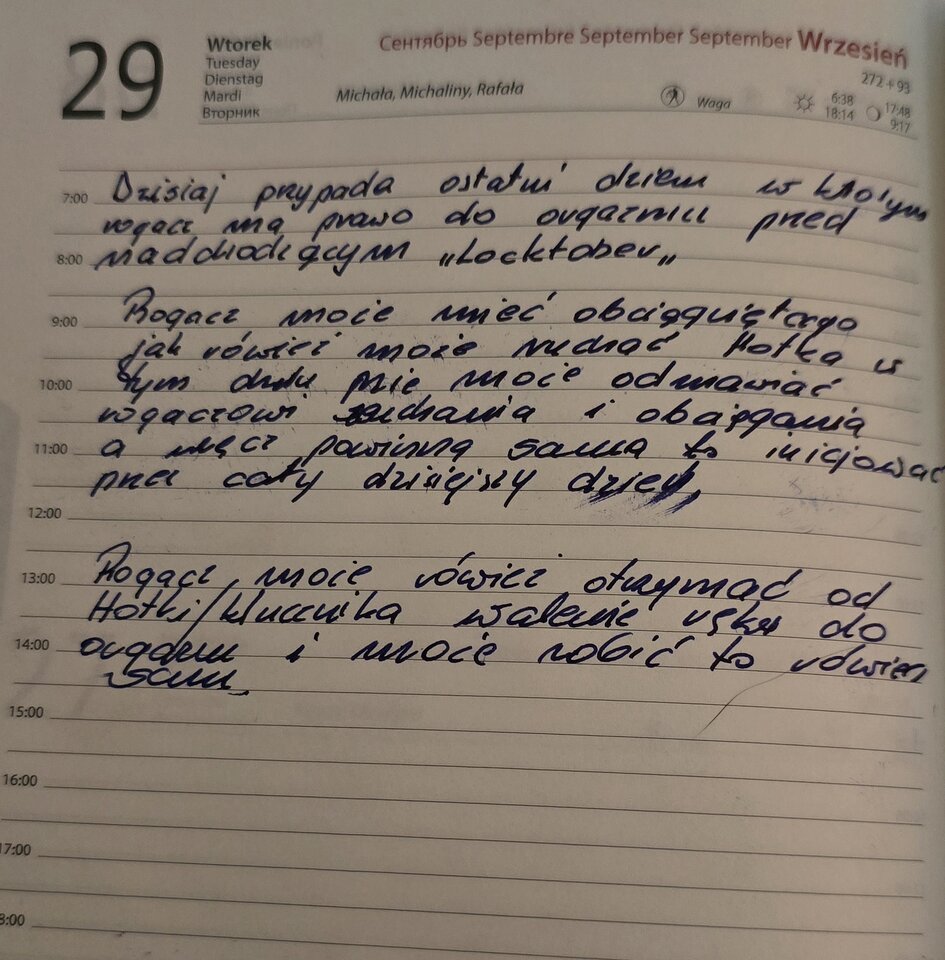 29
Wtorek
Tuesday
Dienstag
Mardi
Вторник
Сентябрь Septembre September September Wrzesień
272+93
Michała, Michaliny, Rafała
Waga
6:38
18:14
17:48
9:17
7:00 Dzisiaj przypada ostatni dzień w którym
rogacz ma prawo do orgazmu przed
8:00 nadchodzącym „Locktober„
9:00 Rogacz może mieć obciągniętego
jak również może ruchać Hotka w
10:00 tym dniu nie może odmawiać
rogaczowi ruchania i obciągania
11:00 a wręcz powinna sama to inicjować
przez cały dzisiejszy dzień
12:00
13:00 Rogacz może również otrzymać od
Hotki/klucznika walenie ręką do
14:00 orgazmu i może robić to również
sam
15:00
16:00
17:00
8:00